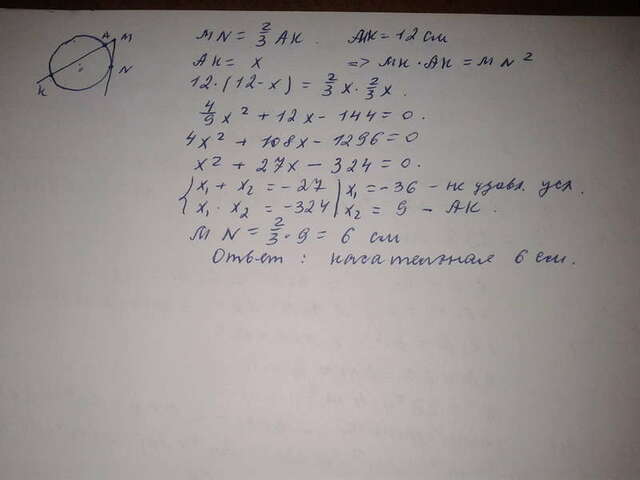 MN = 2/3 AK. AK = 12 см
AK = x => MK · AK = MN²
12 · (12 - x) = 2/3 x · 2/3 x.
4/9 x² + 12x - 144 = 0.
4x² + 108x - 1296 = 0
x² + 27x - 324 = 0.
{ x₁ + x₂ = -27 | x₁ = -36 - не удовл. усл.
x₁ · x₂ = -324 | x₂ = 9 - AK.
MN = 2/3 · 9 = 6 см
Ответ: касательная 6 см.
A M
N
K